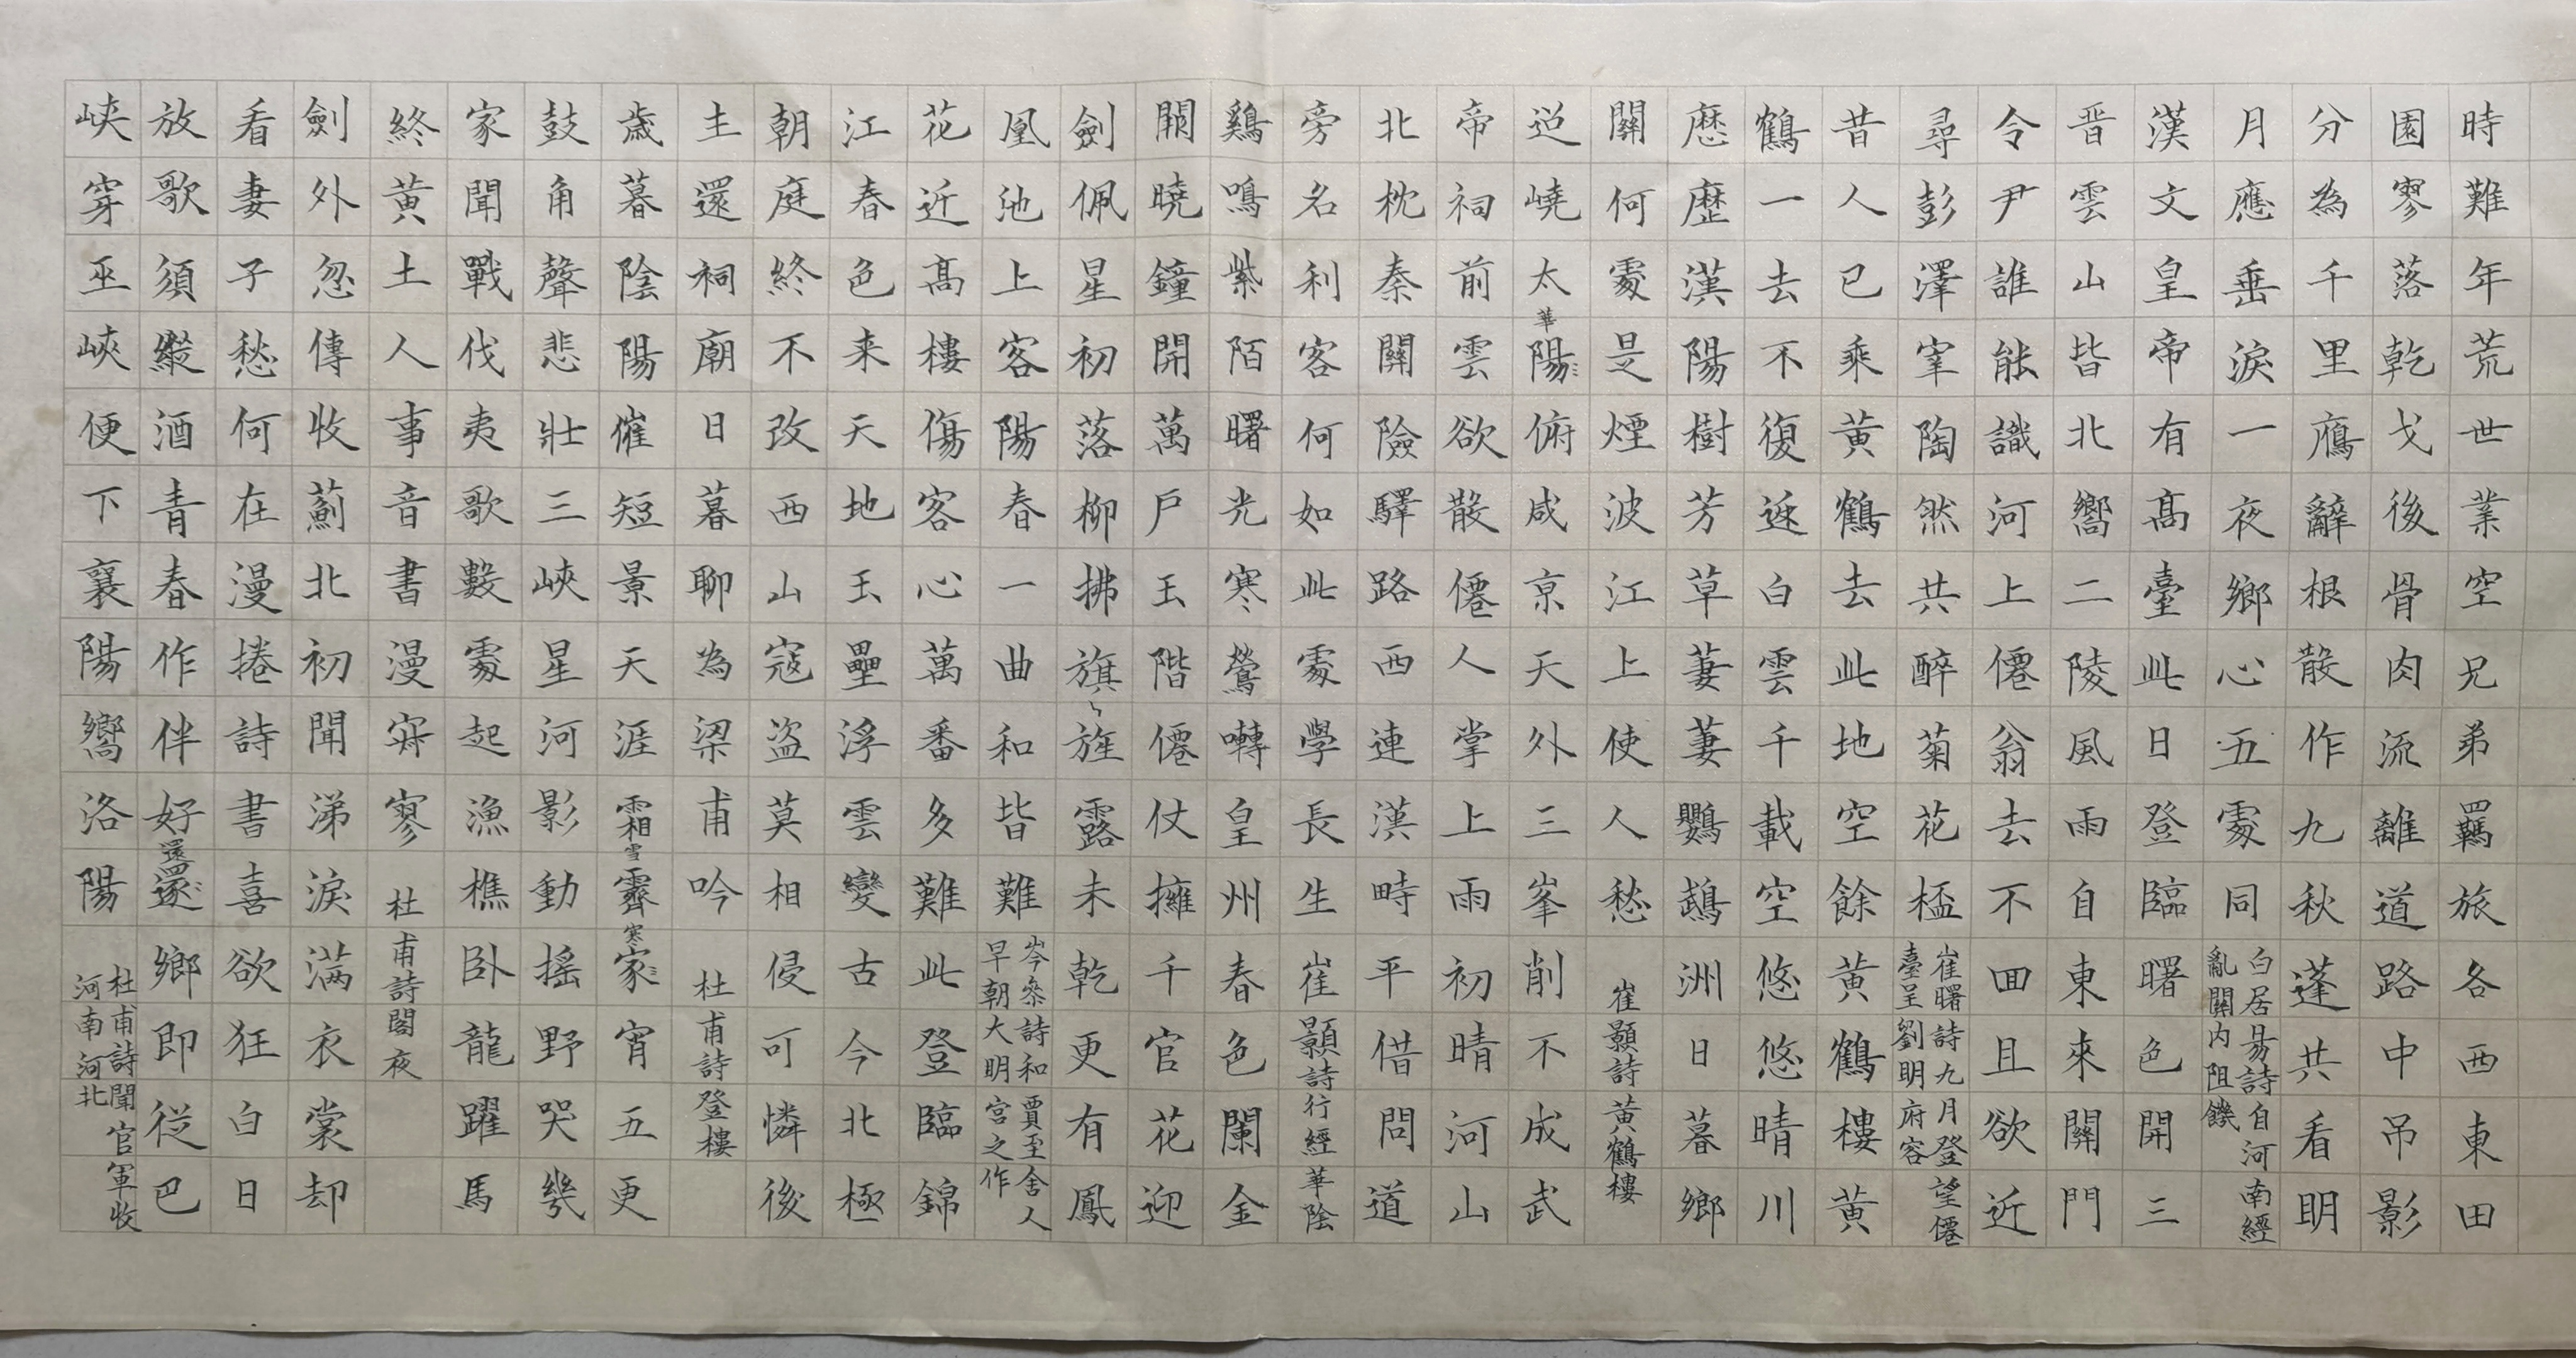 時難年荒世業空兄弟羈旅各西東田
園寥落乾戈後骨肉流離道路中吊影
分為千里鴈辭根散作九秋蓬共看明
月應垂淚一夜鄉心五處同
白居易詩自河南經
亂關内阻饑
漢文皇帝有髙臺此日登臨曙色開三
晋雲山皆北嚮二陵風雨自東來關門
令尹誰能識河上僊翁去不回且欲近
尋彭澤宰陶然共醉菊花桮
崔曙詩九月登望僊
臺呈劉明府容
昔人已乘黄鶴去此地空餘黄鶴樓黄
鶴一去不復返白雲千載空悠悠晴川
歷歷漢陽樹芳草萋萋鸚鵡洲日暮鄉
關何處是煙波江上使人愁
崔顥詩黄鶴樓
迢嶢太華陽俯咸京天外三峯削不成武
帝祠前雲欲散僊人掌上雨初晴河山
北枕秦關險驛路西連漢畤平借問道
旁名利客何如此處學長生
崔顥詩行經華陰
鷄鳴紫陌曙光寒鶯囀皇州春色闌金
闕曉鐘開萬戶玉階僊仗擁千官花迎
劍佩星初落柳拂旗旌露未乾更有鳳
凰池上客陽春一曲和皆難
岑參詩和賈至舍人
早朝大明宫之作
花近髙樓傷客心萬番多難此登臨錦
江春色来天地玉壘浮雲變古今北極
朝庭終不改西山寇盗莫相侵可憐後
主還祠廟日暮聊為梁甫吟
杜甫詩登樓
歲暮陰陽催短景天涯霜雪霽寒家宵五更
鼓角聲悲壯三峽星河影動搖野哭幾
家聞戰伐夷歌數處起漁樵卧龍躍馬
終黄土人事音書漫寂寥
杜甫詩閣夜
劍外忽傳收薊北初聞涕淚滿衣裳却
看妻子愁何在漫捲詩書喜欲狂白日
放歌須縱酒青春作伴好還逐鄉即從巴
峽穿巫峽便下襄陽嚮洛陽
杜甫詩聞官軍收
河南河北